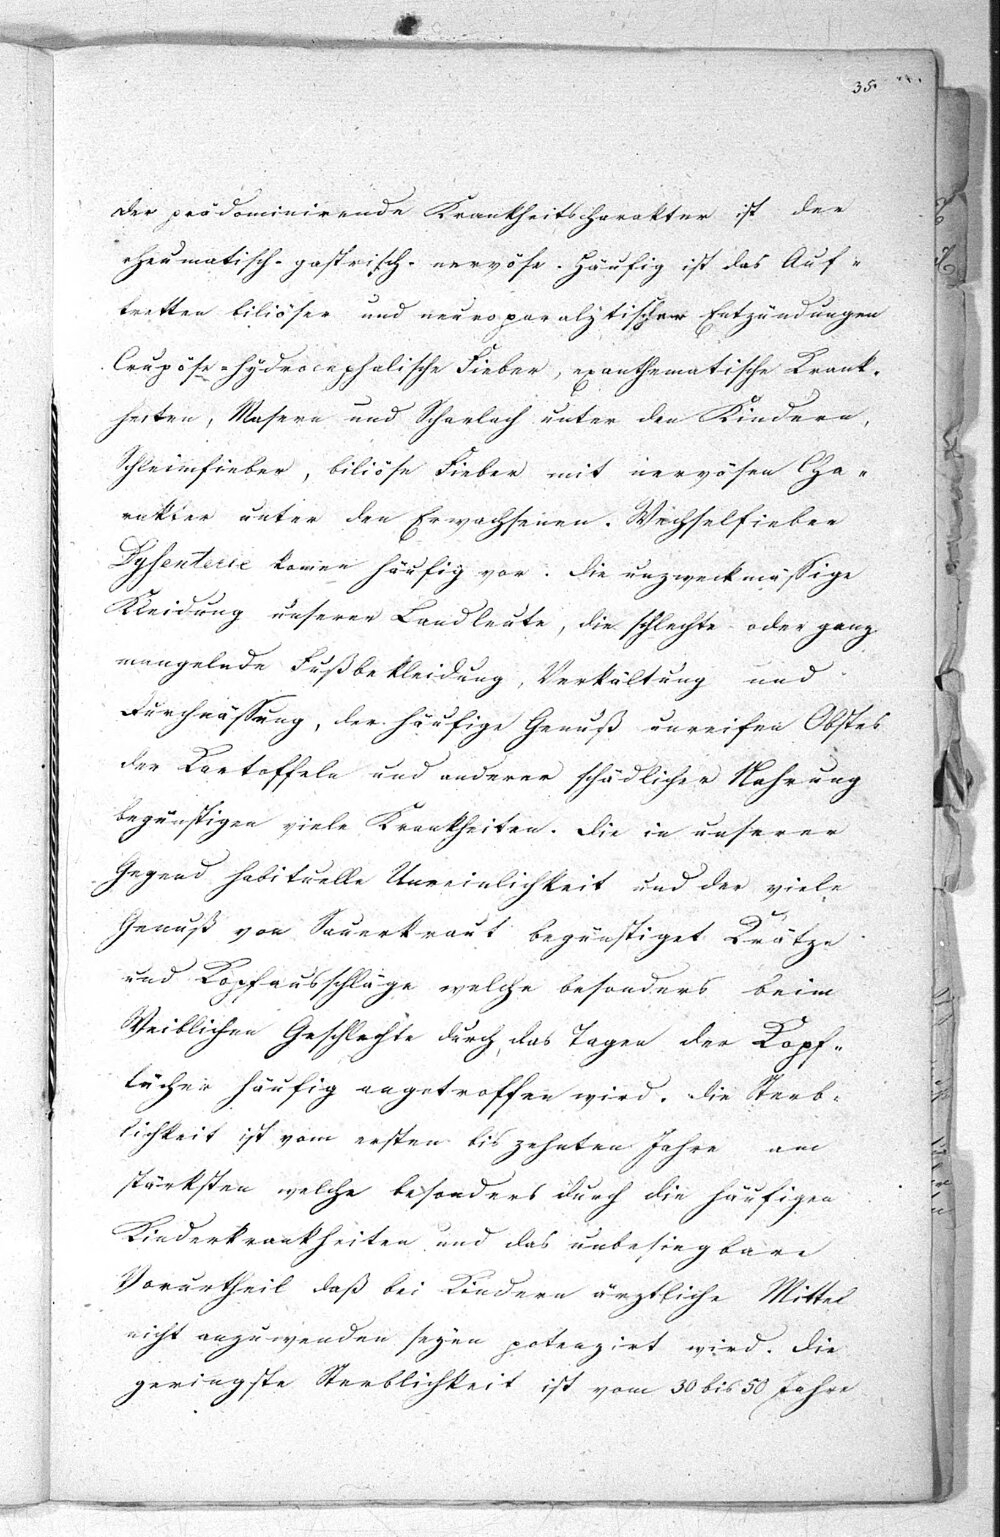 35.
Der prädominirende Krankheitscharakter ist der
rheumatisch-gastrisch-nervöse. Häufig ist das Auf-
tretten biliöser und neuroparalytischer Entzündungen
Crupöse-hydrocephalische Fieber, exanthematische Krank-
heiten, Masern und Scharlach unter den Kindern,
Schleimfieber, biliöse Fieber mit nervösen Cha-
rakter unter den Erwachsenen. Wechselfieber
Dysenterie komen häufig vor. Die unzweckmässige
Kleidung unserer Landleute, die schlechte oder ganz
mangelnde Fußbekleidung, Verkältung und
Durchnässung, der häufige Genuß unreifen Obstes
der Kartoffeln und anderer schädlicher Nahrung
begünstigen viele Krankheiten. Die in unserer
Gegend habituelle Unreinlichkeit und der viele
Genuß von Sauerkraut begünstiget Krätze
und Kopfausschläge welche besonders beim
Weiblichen Geschlechte durch das Tagen der Kopf-
tücher häufig angetroffen wird. Die Sterb-
lichkeit ist vom ersten bis zehnten Jahre am
stärksten welche besonders durch die häufigen
Kinderkrankheiten und das unbesiegbare
Vorurtheil daß bei Kindern ärztliche Mittel
nicht anzuwenden seyen potenzirt wird. Die
geringste Sterblichkeit ist vom 30 bis 50 Jahre